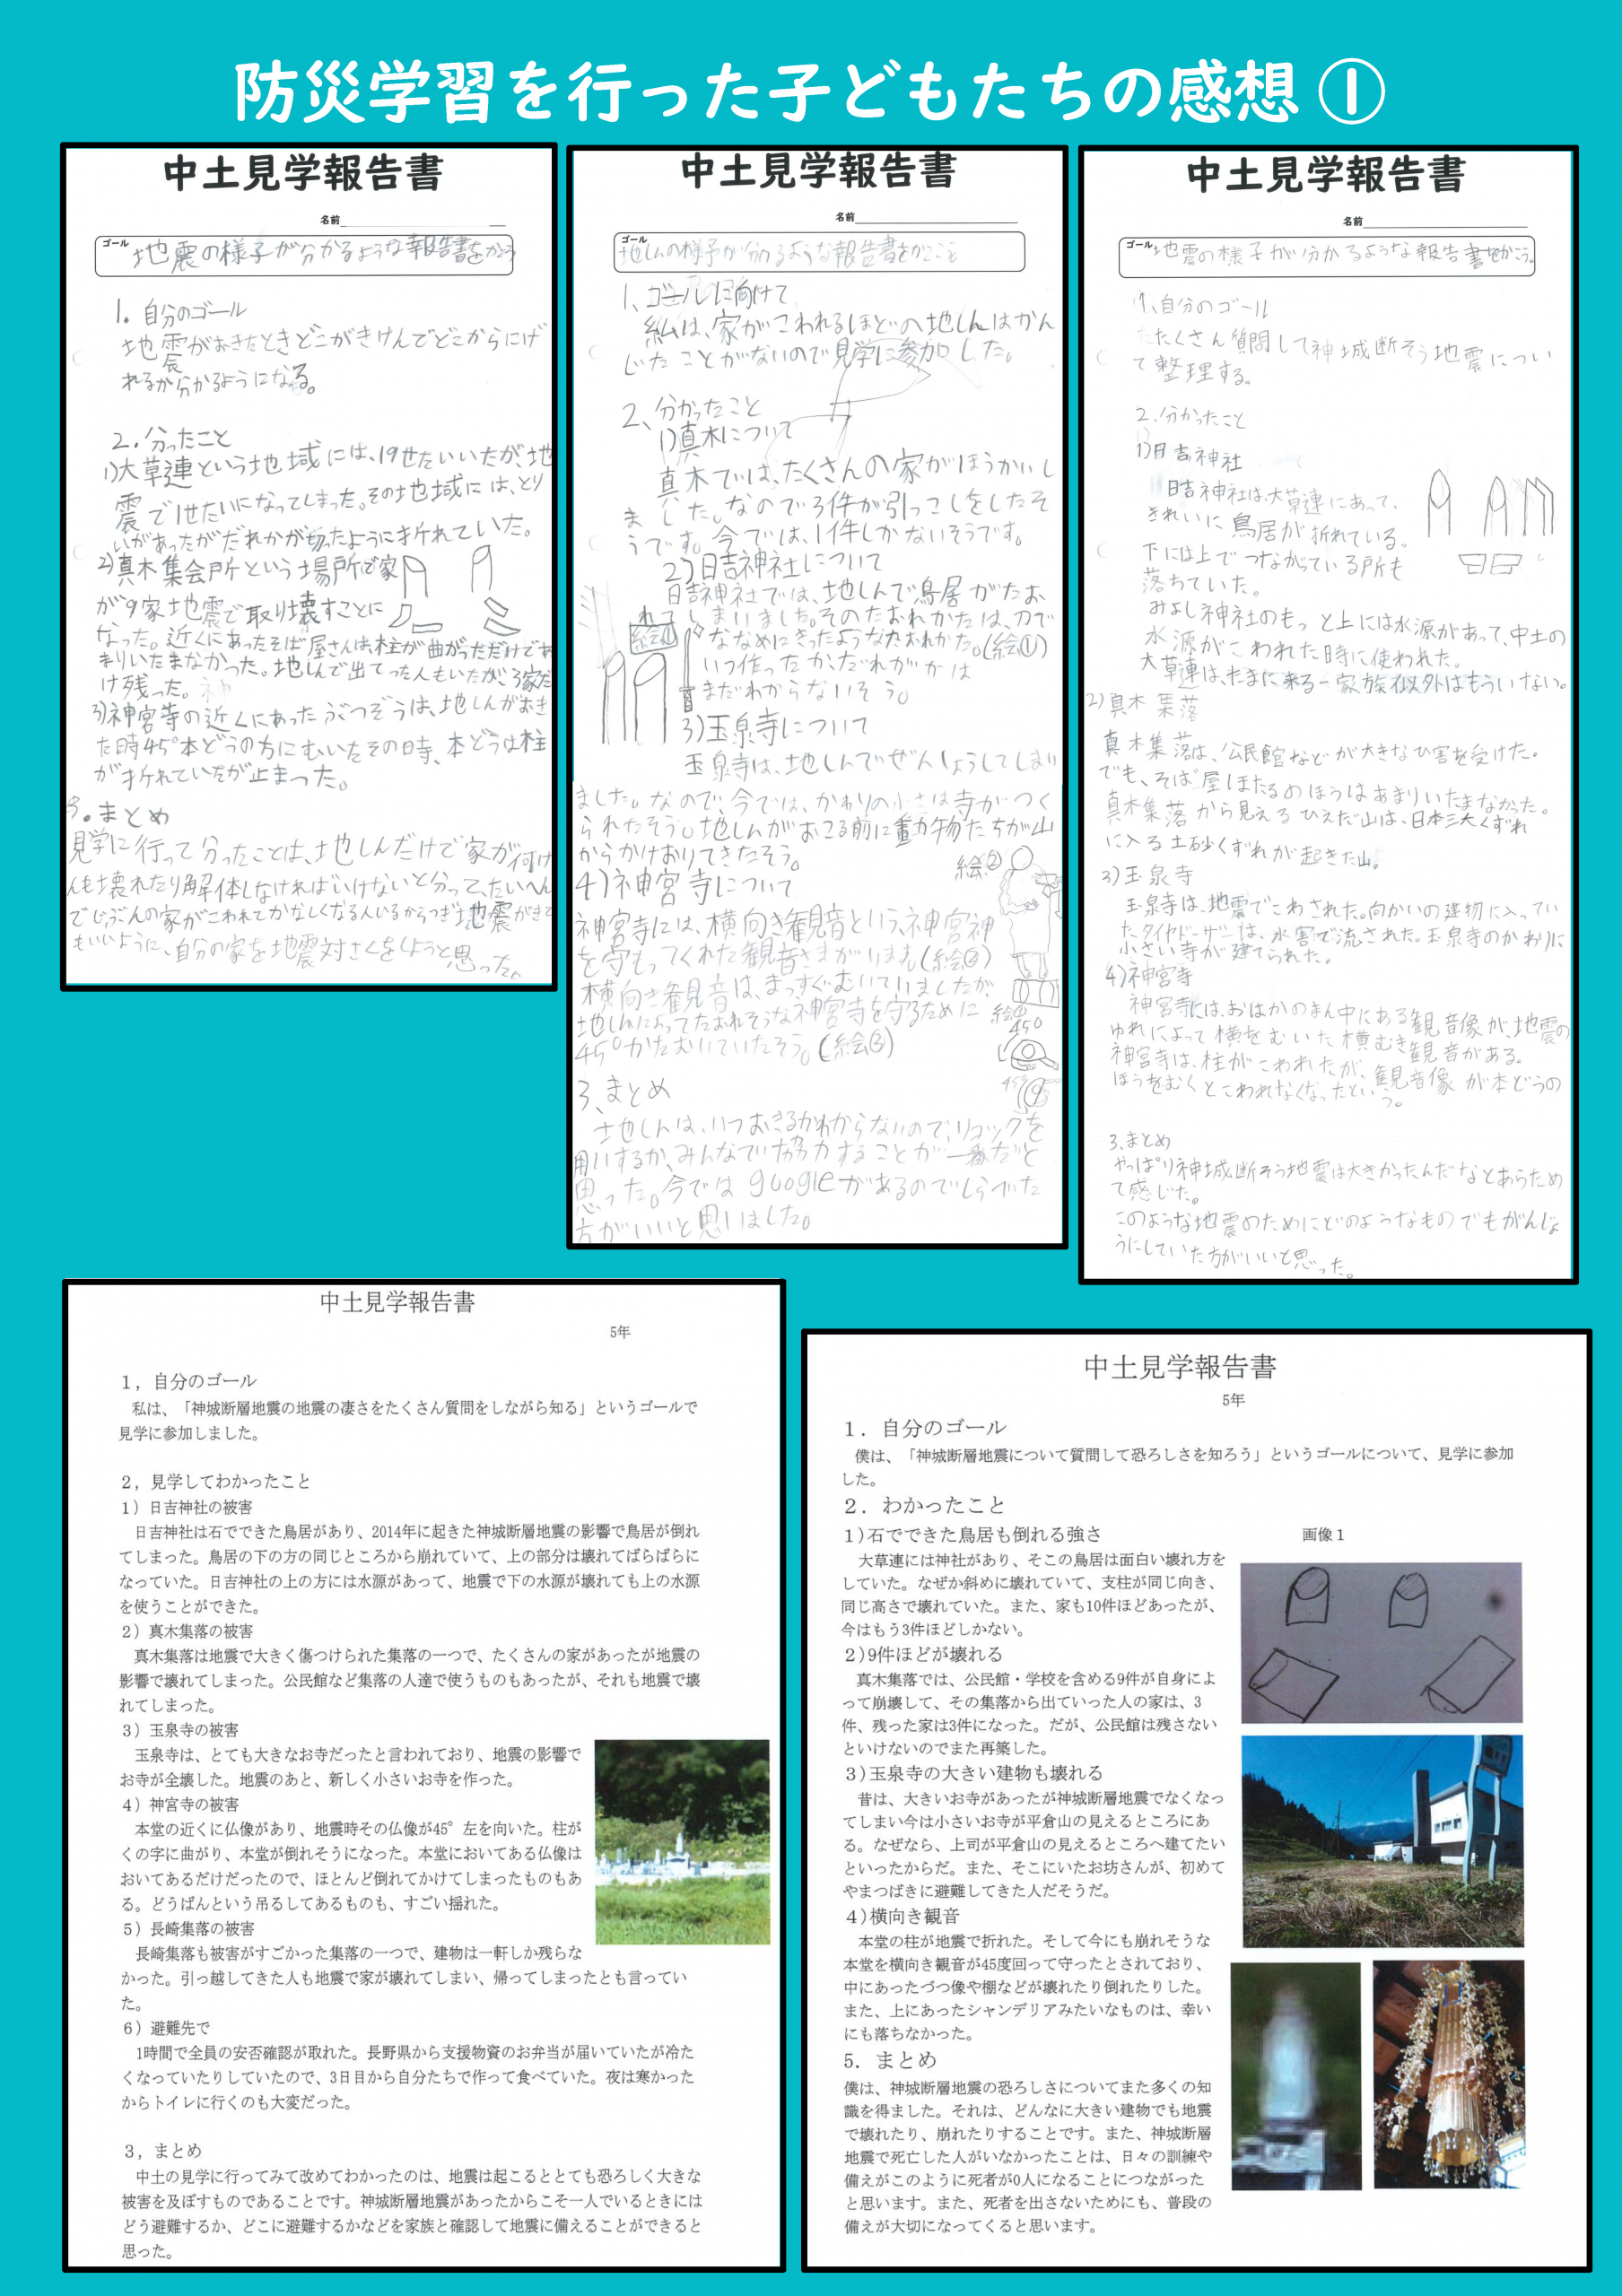 防災学習を行った子どもたちの感想①
中土見学報告書
名前
ゴール
地震の様子が分かるような報告書をかこう
1. 自分のゴール
地震がおきたときどこがきけんでどこからにげ
れるか分かるようになる。
2. 分ったこと
1)大草連という地域には、19せたいいたが、地
震で1せたいになってしまった。その地域には、とり
いがあったがだれかが切ったように折れていた。
2)真木集会所という場所で家
が9家地震で取り壊すことに
なった。近くにあったそば屋さんは、柱が曲がっただけであ
まりいたまなかった。地しんで出てった人もいたが、3家だ
け残った。
3)神宮寺の近くにあったぶつぞうは、地しんがおき
た時45°本どうの方にむいたその時、本どうは柱
が折れていたが止まった。
3. まとめ
見学に行って分ったことは、地しんだけで家が何け
んも壊れたり解体しなければいけないと分って、たいへん
でじぶんの家がこわれてかなしくなる人いるからつぎ地震がきて
もいいように、自分の家を地震対さくをしようと思った。
中土見学報告書
名前
ゴール
地しんの様子が分かるような報告書をかこう
1、ゴールに向けて
私は、家がこわれるほどの地しんはかん
じたことがないので見学に参加した。
2、分かったこと
1)真木について
真木では、たくさんの家がほうかいし
ました。なので3件が引っこしをしたそ
うです。今では、1件しかないそうです。
2)日吉神社について
日吉神社では、地しんで鳥居がたお
れてしまいました。そのたおれかたは、刀で
ななめにきったようなたおれかた。(絵①)
いつ作ったか、だれがかは
まだわからないそう。
絵①
3)玉泉寺について
玉泉寺は、地しんでぜんしょうしてしまい
ました。なので、今では、かわりの小さな寺がつく
られたそう。地しんがおこる前に動物たちが山
からかけおりてきたそう。
4)神宮寺について
絵②
神宮寺には、横向き観音という、神宮神
を守もってくれた観音さまがいます。(絵②)
横向き観音は、まっすぐむいていましたが、
地しんによってたおれそうな神宮寺を守るために
45°かたむいていたそう。(絵③)
45°
3、まとめ
地しんは、いつおきるかわからないので、リュックを
用いするか、みんなで協力することが一番だと
思った。今ではgoogleがあるのでしらべた
方がいいと思いました。
中土見学報告書
名前
ゴール
地震の様子が分かるような報告書をかこう。
1、自分のゴール
たくさん質問して神城断そう地震につい
て整理する。
2、分かったこと
1)日吉神社
日吉神社は、大草連にあって、
きれいに鳥居が折れている。
下には上でつながっている所も
落ちていた。
みよし神社のもっと上には水源があって、中土の
水源がこわれた時に使われた。
大草連は、たまに来る一家族以外はもういない。
2)真木集落
真木集落は、公民館などが大きなひ害を受けた。
でも、そば屋ほたるのほうはあまりいたまなかった。
真木集落から見えるひえだ山は、日本三大くずれ
に入る土砂くずれが起きた山。
3)玉泉寺
玉泉寺は、地震でこわされた。向かいの建物に入ってい
たダイヤドーザーは、水害で流された。玉泉寺のかわりに
小さい寺が建てられた。
4)神宮寺
神宮寺には、おはかのまん中にある観音像が、地震の
ゆれによって横をむいた横むき観音がある。
神宮寺は、柱がこわれたが、観音像が本どうの
ほうをむくとこわれなくなったという。
3、まとめ
やっぱり神城断そう地震は大きかったんだなとあらため
て感じた。
このような地震のためにどのようなものでもがんじょ
うにしていた方がいいと思った。
中土見学報告書
5年
1，自分のゴール
私は、「神城断層地震の地震の凄さをたくさん質問をしながら知る」というゴールで
見学に参加しました。
2，見学してわかったこと
1）日吉神社の被害
日吉神社は石でできた鳥居があり、2014年に起きた神城断層地震の影響で鳥居が倒れ
てしまった。鳥居の下の方の同じところから崩れていて、上の部分は壊れてばらばらに
なっていた。日吉神社の上の方には水源があって、地震で下の水源が壊れても上の水源
を使うことができた。
2）真木集落の被害
真木集落は地震で大きく傷つけられた集落の一つで、たくさんの家があったが地震の
影響で壊れてしまった。公民館など集落の人達で使うものもあったが、それも地震で壊
れてしまった。
3）玉泉寺の被害
玉泉寺は、とても大きなお寺だったと言われており、地震の影響で
お寺が全壊した。地震のあと、新しく小さいお寺を作った。
4）神宮寺の被害
本堂の近くに仏像があり、地震時その仏像が45°左を向いた。柱が
くの字に曲がり、本堂が倒れそうになった。本堂においてある仏像は
おいてあるだけだったので、ほとんど倒れてかけてしまったものもあ
る。どうばんという吊るしてあるものも、すごい揺れた。
5）長崎集落の被害
長崎集落も被害がすごかった集落の一つで、建物は一軒しか残らな
かった。引っ越してきた人も地震で家が壊れてしまい、帰ってしまったとも言ってい
た。
6）避難先で
1時間で全員の安否確認が取れた。長野県から支援物資のお弁当が届いていたが冷た
くなっていたりしていたので、3日目から自分たちで作って食べていた。夜は寒かった
からトイレに行くのも大変だった。
3，まとめ
中土の見学に行ってみて改めてわかったのは、地震は起こるととても恐ろしく大きな
被害を及ぼすものであることです。神城断層地震があったからこそ一人でいるときには
どう避難するか、どこに避難するかなどを家族と確認して地震に備えることができると
思った。
中土見学報告書
5年
1．自分のゴール
僕は、「神城断層地震について質問して恐ろしさを知ろう」というゴールについて、見学に参加
した。
2．わかったこと
1)石でできた鳥居も倒れる強さ
画像1
大草連には神社があり、そこの鳥居は面白い壊れ方を
していた。なぜか斜めに壊れていて、支柱が同じ向き、
同じ高さで壊れていた。また、家も10件ほどあったが、
今はもう3件ほどしかない。
2)9件ほどが壊れる
真木集落では、公民館・学校を含める9件が自身によ
って崩壊して、その集落から出ていった人の家は、3
件、残った家は3件になった。だが、公民館は残さない
といけないのでまた再築した。
3)玉泉寺の大きい建物も壊れる
昔は、大きいお寺があったが神城断層地震でなくなっ
てしまい今は小さいお寺が平倉山の見えるところにあ
る。なぜなら、上司が平倉山の見えるところへ建てたい
といったからだ。また、そこにいたお坊さんが、初めて
やまつばきに避難してきた人だそうだ。
4)横向き観音
本堂の柱が地震で折れた。そして今にも崩れそうな
本堂を横向き観音が45度回って守ったとされており、
中にあったづつ像や棚などが壊れたり倒れたりした。
また、上にあったシャンデリアみたいなものは、幸い
にも落ちなかった。
5．まとめ
僕は、神城断層地震の恐ろしさについてまた多くの知
識を得ました。それは、どんなに大きい建物でも地震
で壊れたり、崩れたりすることです。また、神城断層
地震で死亡した人がいなかったことは、日々の訓練や
備えがこのように死者が0人になることにつながった
と思います。また、死者を出さないためにも、普段の
備えが大切になってくると思います。